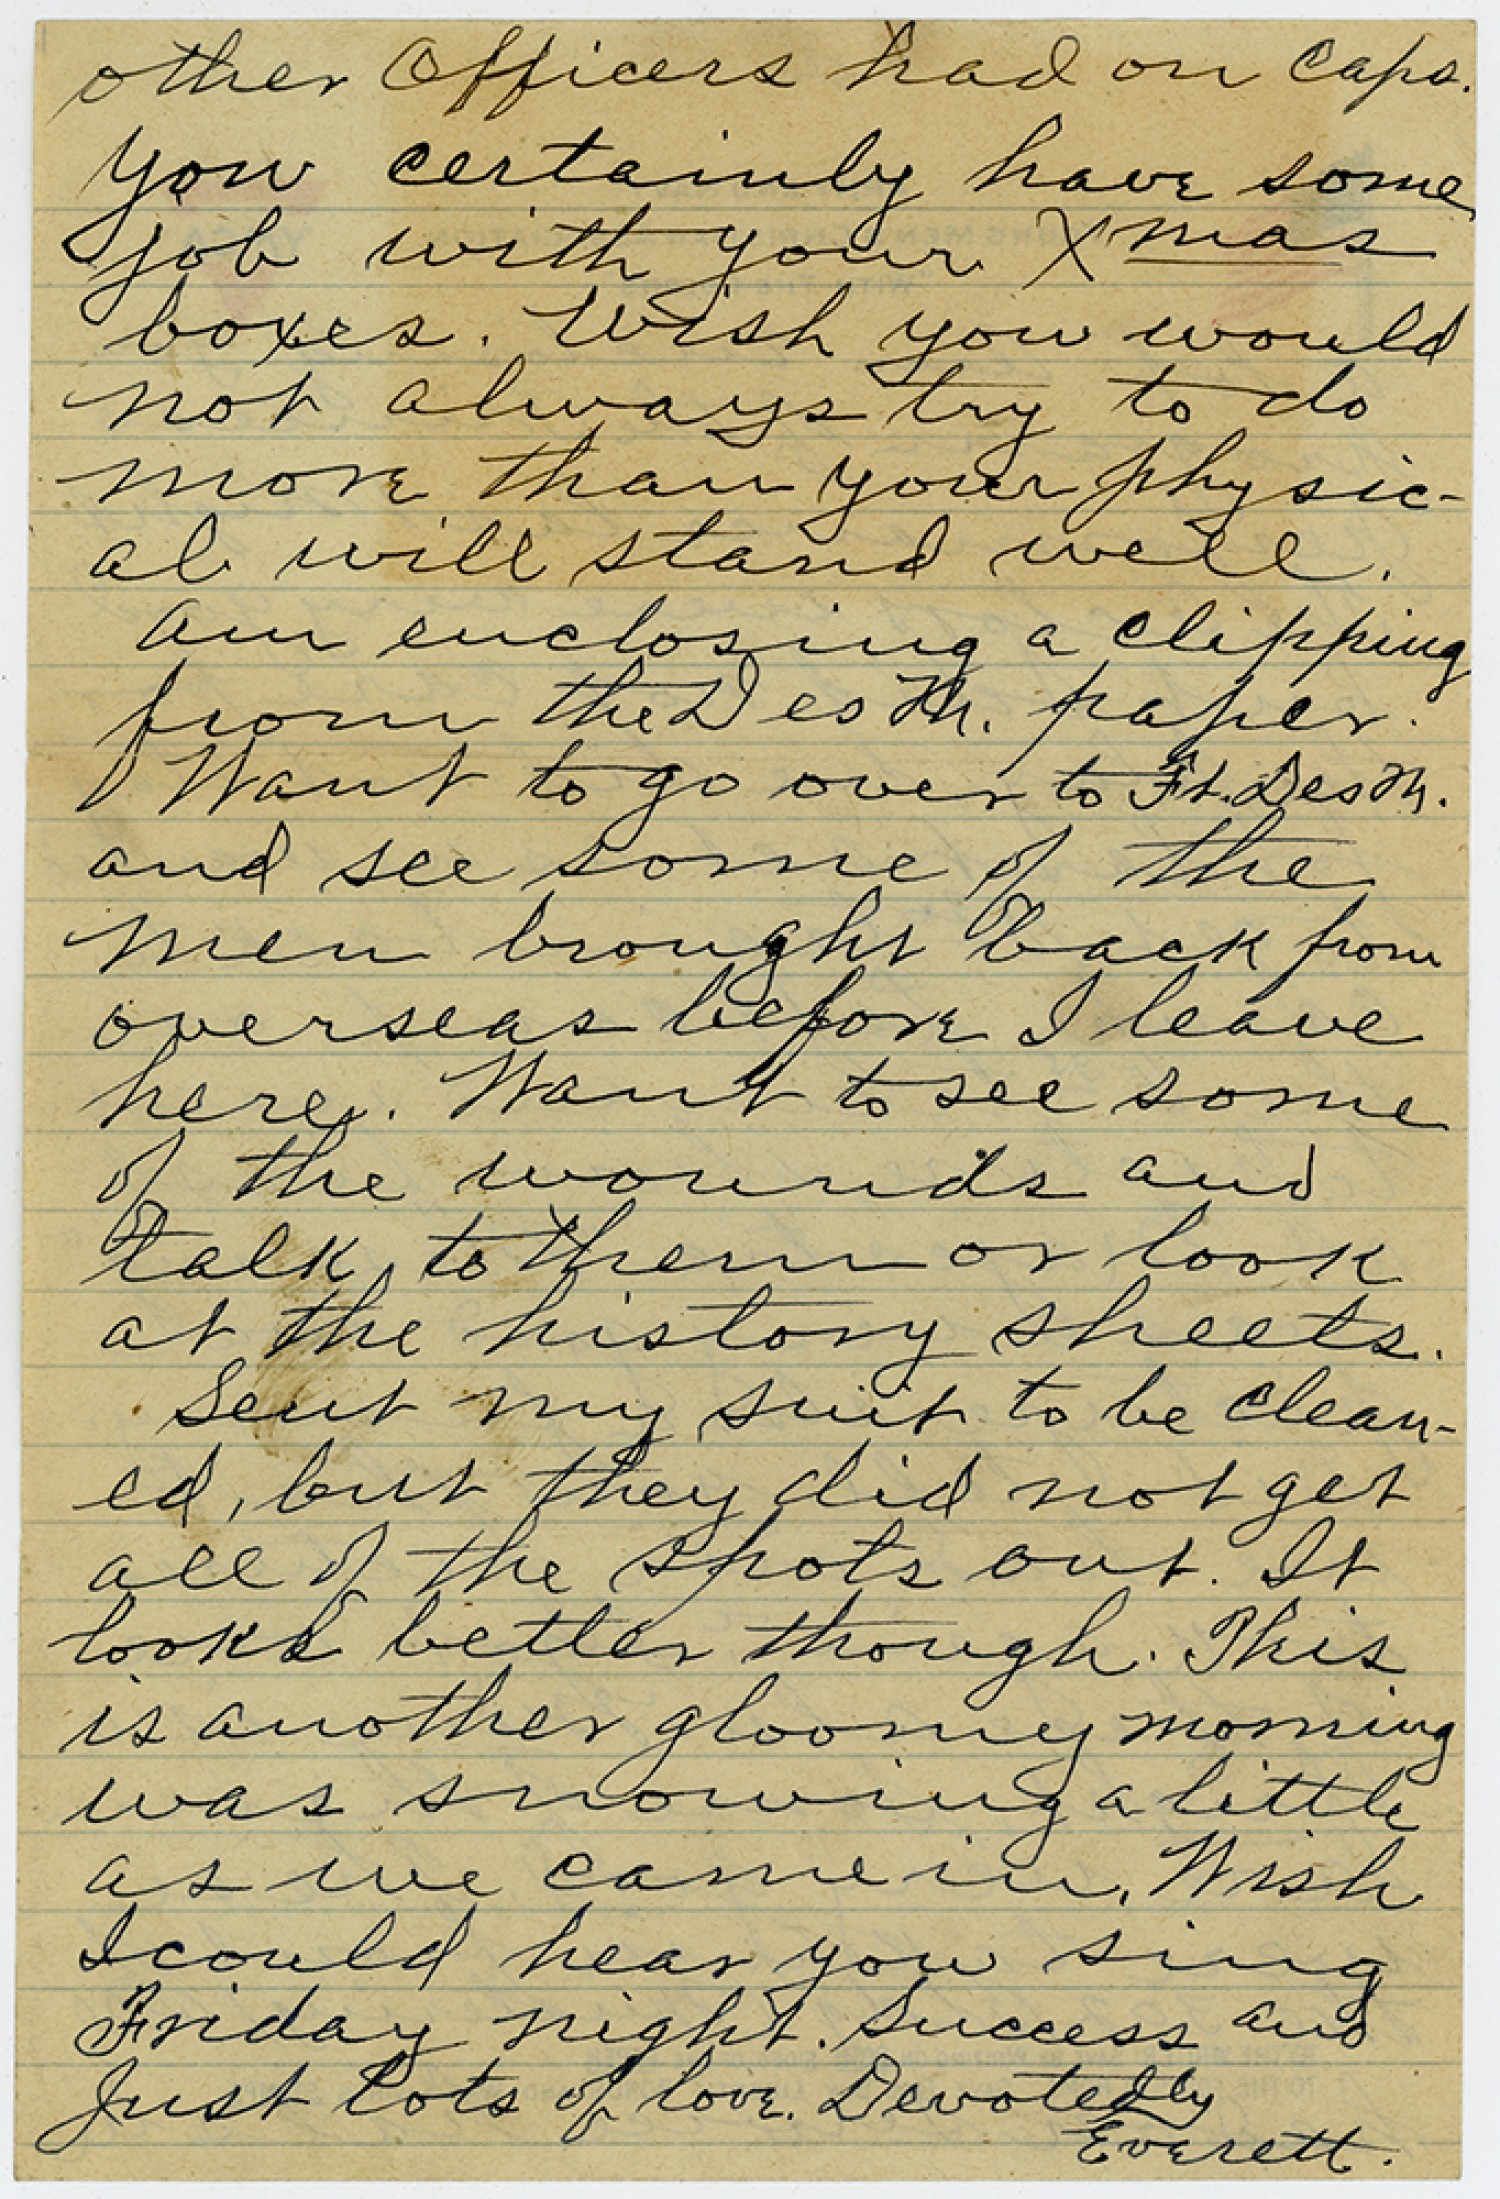 other Officers had on caps.
You certainly have some
job with your Xmas
boxes. Wish you would
not always try to do
more than your physic-
al will stand well.
Am enclosing a clipping
from the Des M. paper.
I Want to go over to Ft. Des M.
and see some of the
men brought back from
overseas before I leave
here. Want to see some
of the wounds and
talk to them or look
at the history sheets.
Sent my suit to be clean-
ed, but they did not get
all of the spots out. It
looks better though. This
is another gloomy morning
was snowing a little
as we came in. Wish
I could hear you sing
Friday night. Success and
Just lots of love. Devotedly
Everett.